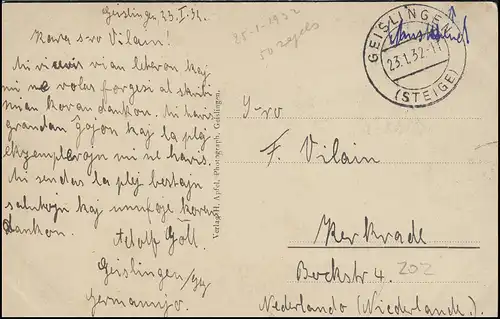 Geislingen, 23.I.32.
Kara s-ro Vilain!
Mi ricevis vian leteron kaj
mi ne volas forgesi al skribi
mian koran dankon. Mi havis
grandan ĝojon kaj la plej
ekzemplerojn mi ne havis.
Mi sendas la plej bestajn
salutojn kaj
dankon.
Adolf Göll
Geislingen/Stg
Germanujo.
Verlag H. Apfel, Photograph, Geislingen.
25-1-1932
50 zegels
GEISLINGEN
23.1.32.
(STEIGE)
S-ro
F. Vilain
Kerkrade
Bockstr 4.
202
Nederlando (Niederlande.)